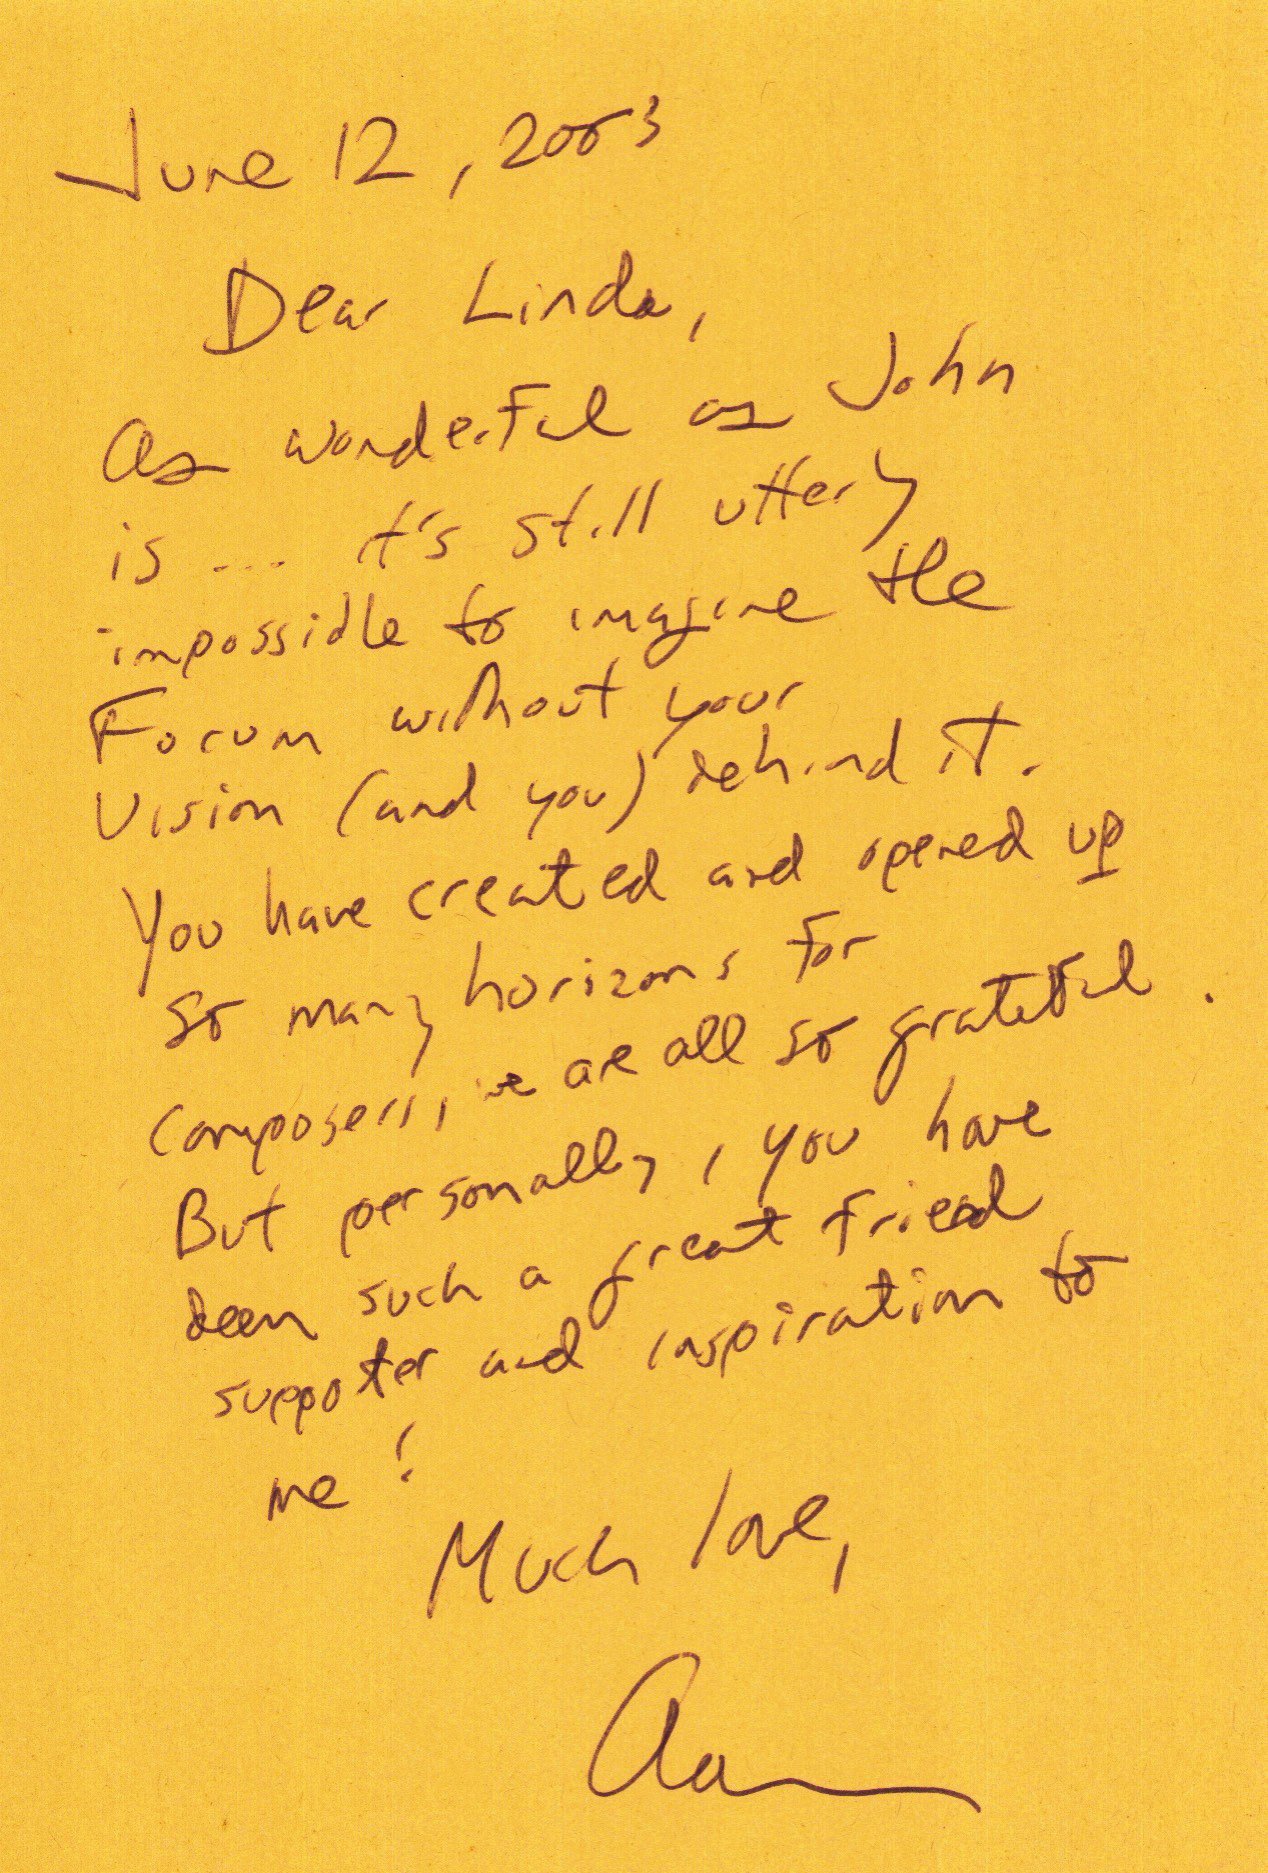 June 12, 2003
Dear Linda,
As wonderful as John
is ... it's still utterly
impossible to imagine the
Forum without your
Vision (and you) behind it.
You have created and opened up
so many horizons for
composers, we are all so grateful.
But personally, you have
been such a great friend
suppoter and inspiration to
me!
Much love,
Aaron